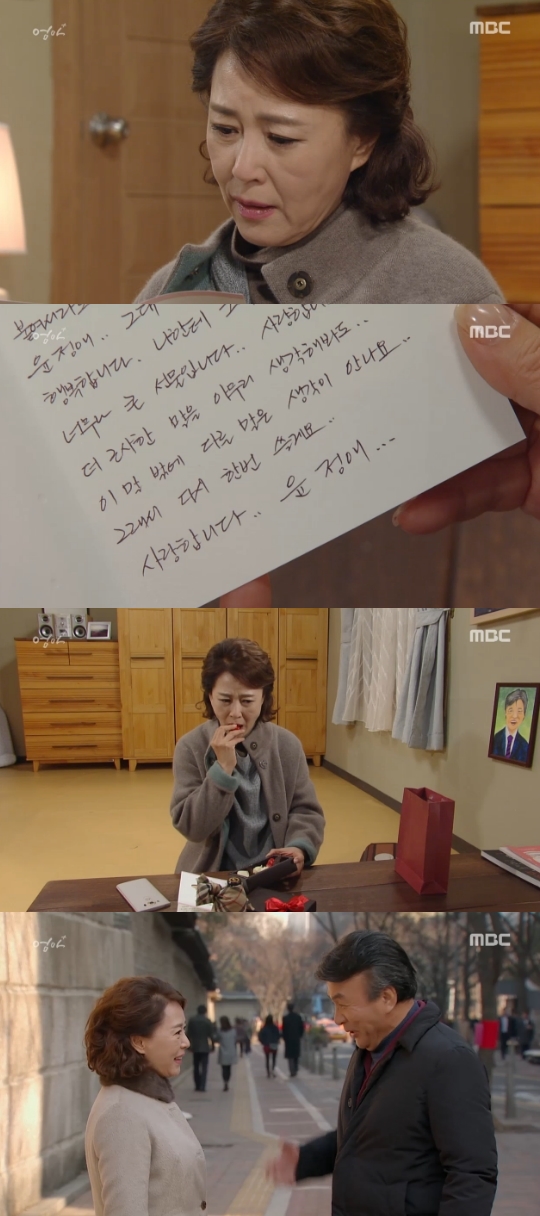 엄마
MBC
MBC
윤정애.. 그대
행복합니다. 나한테
너무나 큰 선물입니다.. 사랑합니
더 근사한 말을 아무리 생각해봐도..
이 말 밖에 다른 말은 생각이 안나요..
그래서 다시 한번 쓸게요..
사랑합니다.. 윤정애...
엄마
MBC
엄마
MBC